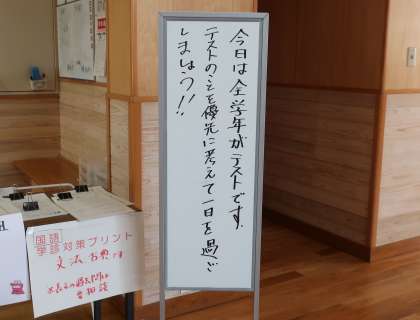 今日は全学年がテストです。
テストのことを優先に考えて一日を過ご
しましょう!!
国語
学診対策プリント
文法 古典 です